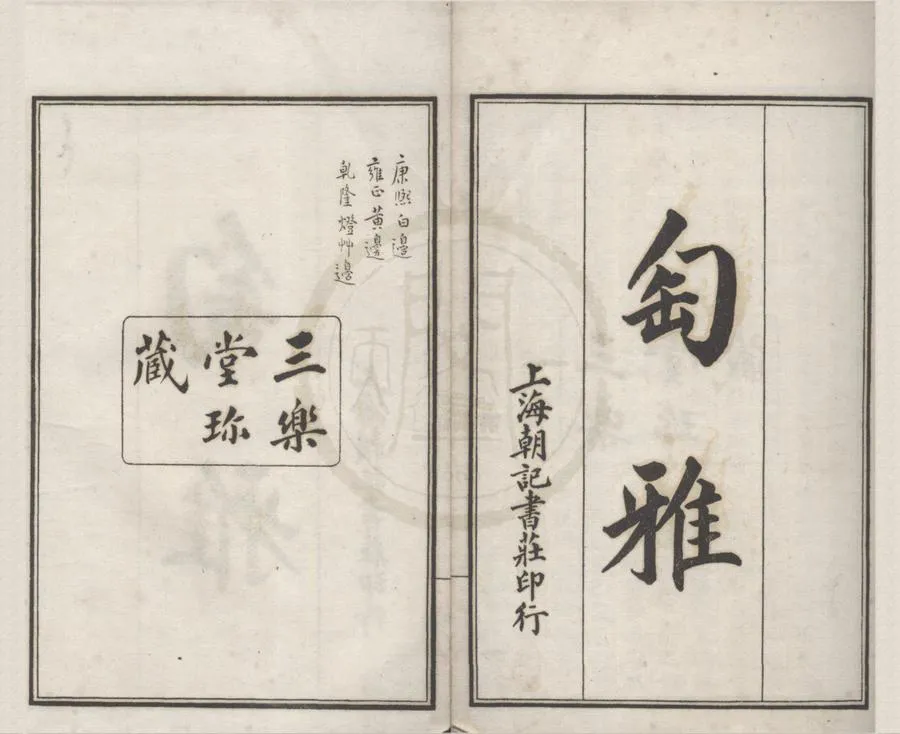 匋雅
上海朝記書莊印行
康熙白邊
雍正黃邊
乾隆燈艸邊
三樂
堂珎
藏